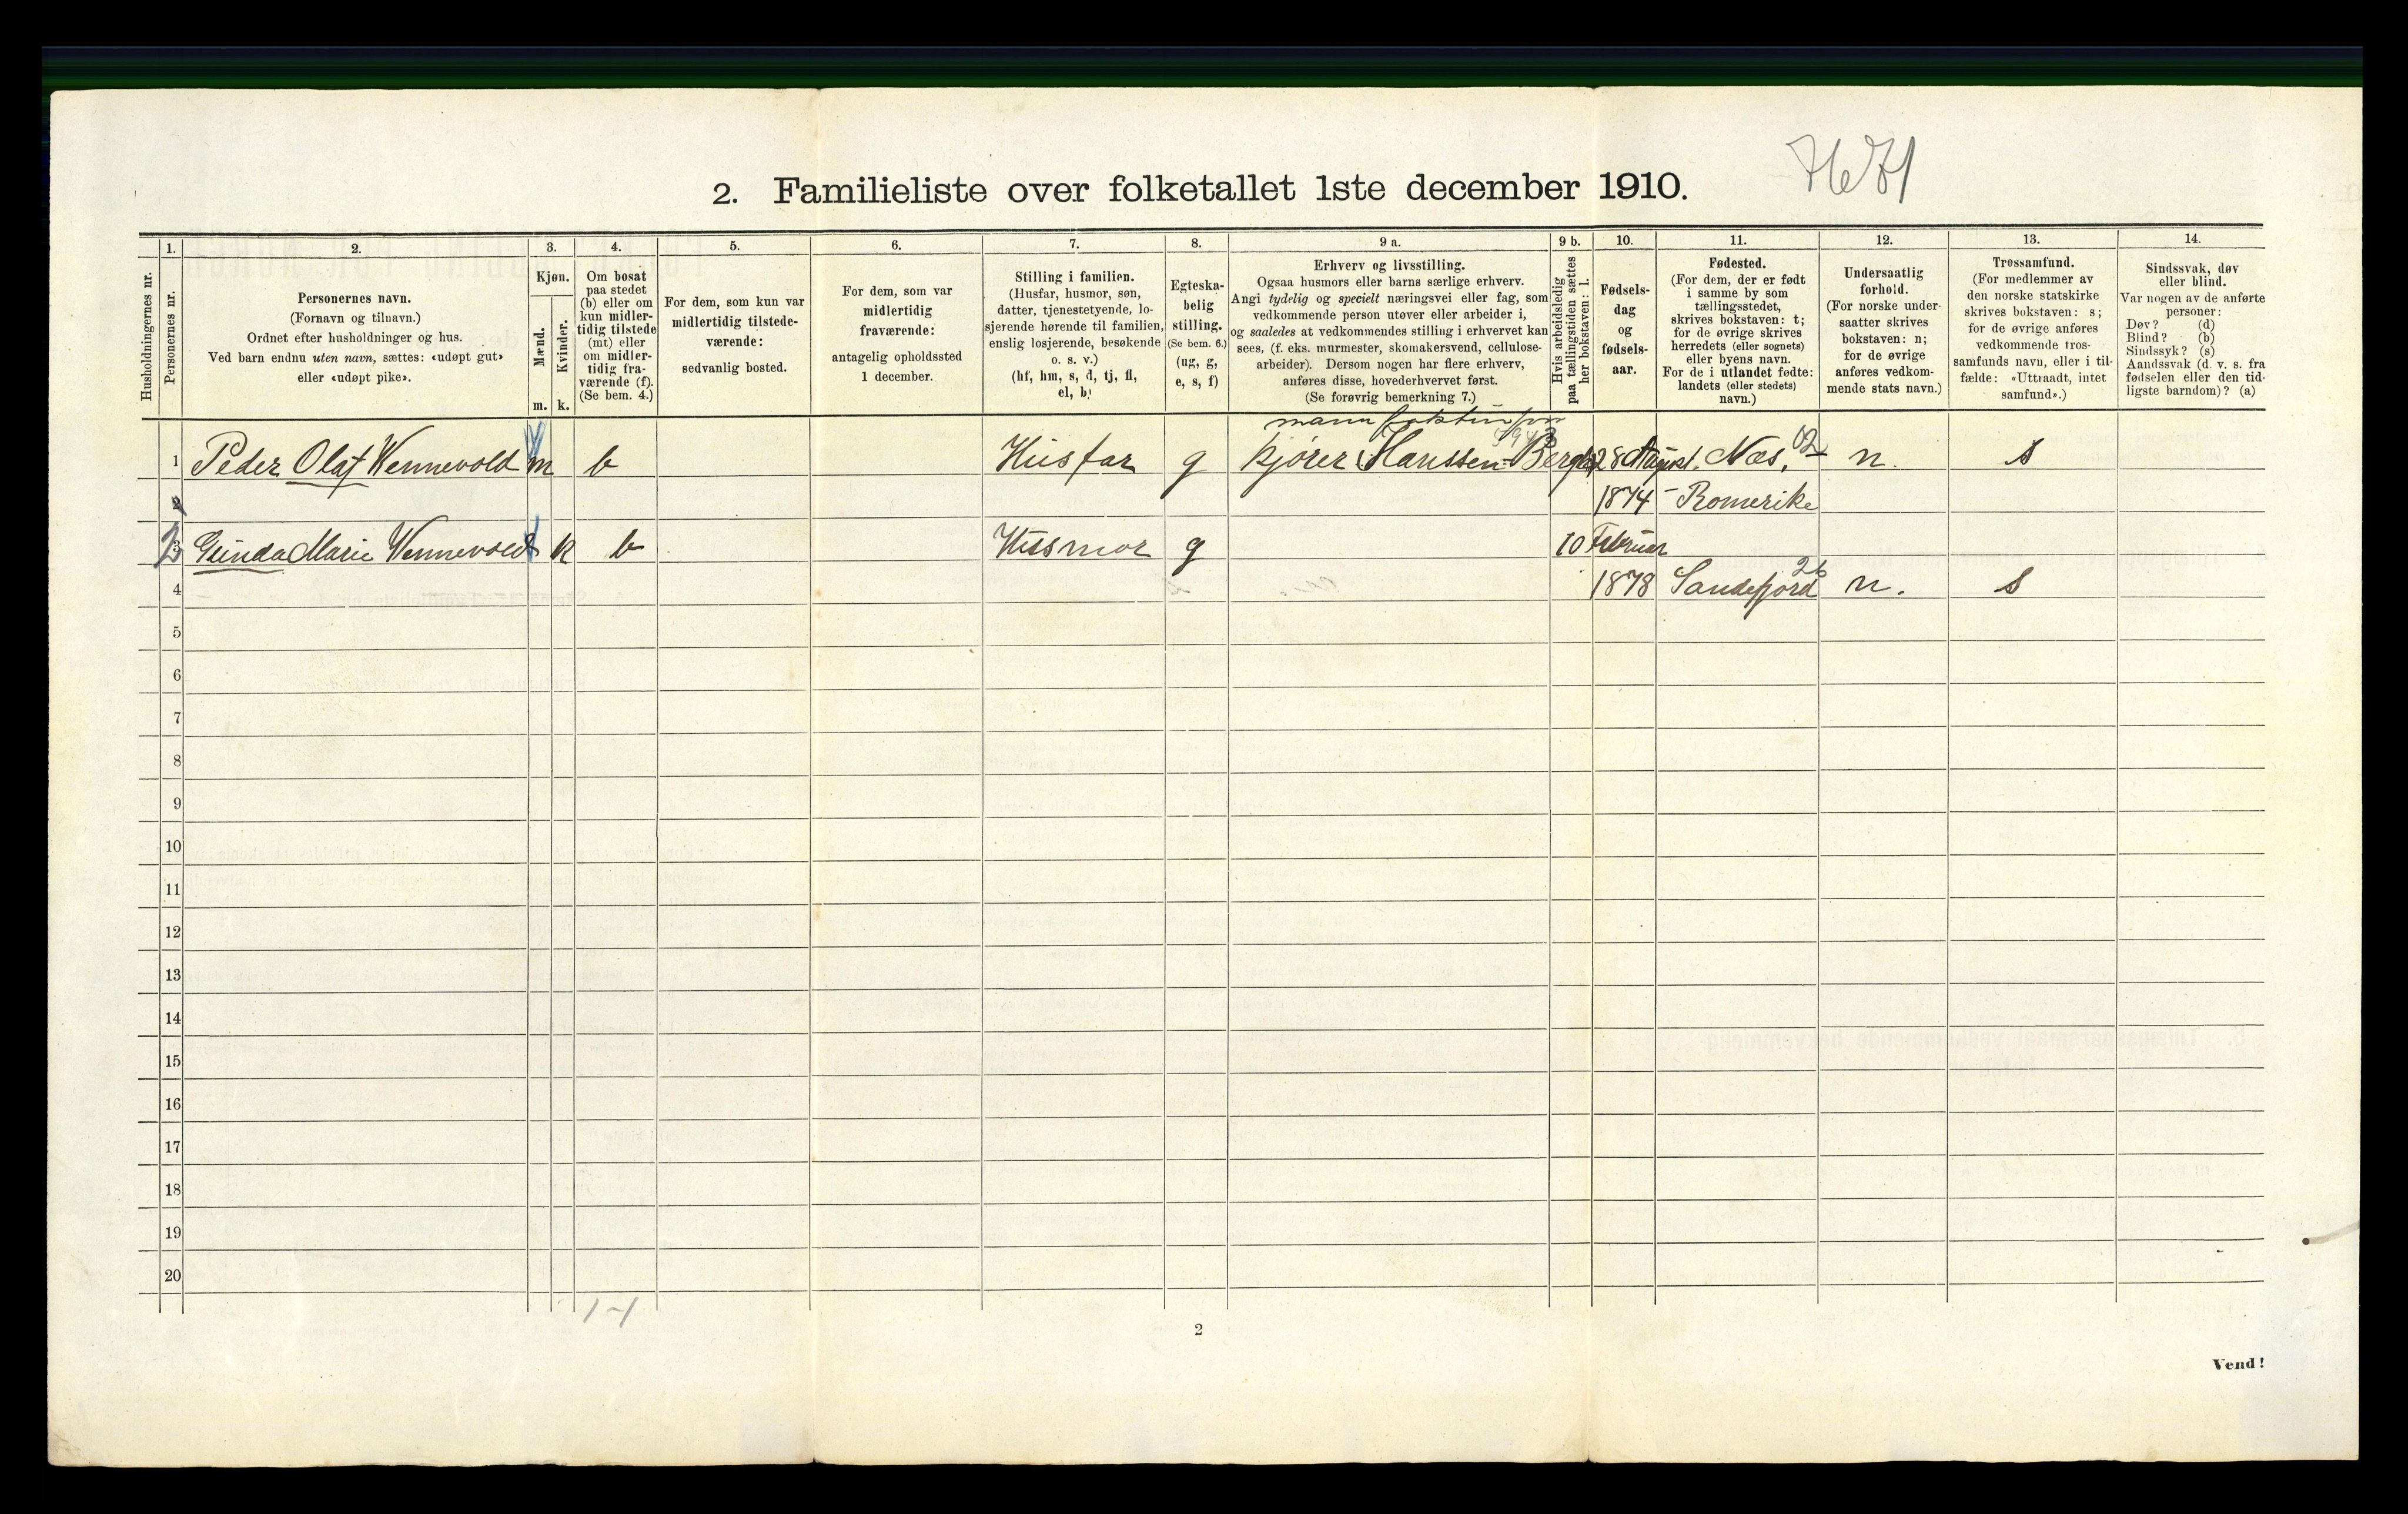 2. Familieliste over folketallet 1ste december 1910.
Husholdningernes nr.
1.
Personernes nr.
2.
Personernes navn.
(Fornavn og tilnavn.)
Ordnet efter husholdninger og hus.
Ved barn endnu uten navn, sættes: «udøpt gut»
eller «udøpt pike».
3.
Kjøn.
Mænd.
Kvinder.
m. k.
4.
Om bosat
paa stedet
(b) eller om
kun midler-
tidig tilstede
(mt) eller
om midler-
tidig fra-
værende (f).
(Se bem. 4.)
5.
For dem, som kun var
midlertidig tilstede-
værende:
sedvanlig bosted.
6.
For dem, som var
midlertidig
fraværende:
antagelig opholdssted
1 december.
7.
Stilling i familien.
(Husfar, husmor, søn,
datter, tjenestetyende, lo-
sjerende hørende til familien,
enslig losjerende, besøkende
o. s. v.)
(hf, hm, s, d, tj, fl,
el, b)
8.
Egteska-
belig
stilling.
(Se bem. 6.)
(ug, g,
e, s, f)
9 a.
Erhverv og livsstilling.
Ogsaa husmors eller barns særlige erhverv.
Angi tydelig og specielt næringsvei eller fag, som
vedkommende person utøver eller arbeider i,
og saaledes at vedkommendes stilling i erhvervet kan
sees, (f. eks. murmester, skomakersvend, cellulose-
arbeider). Dersom nogen har flere erhverv,
anføres disse, hovederhvervet først.
(Se forøvrig bemerkning 7.)
9 b.
Hvis arbeidsledig
paa tællingstiden sættes
her bokstaven: l.
10.
Fødsels-
dag
og
fødsels-
aar.
11.
Fødested.
(For dem, der er født
i samme by som
tællingsstedet,
skrives bokstaven: t;
for de øvrige skrives
herredets (eller sognets)
eller byens navn.
For de i utlandet fødte:
landets (eller stedets)
navn.)
12.
Undersaatlig
forhold.
(For norske under-
saatter skrives
bokstaven: n;
for de øvrige
anføres vedkom-
mende stats navn.)
13.
Trossamfund.
(For medlemmer av
den norske statskirke
skrives bokstaven: s;
for de øvrige anføres
vedkommende tros-
samfunds navn, eller i til-
fælde: «Uttraadt, intet
samfund».)
14.
Sindssvak, døv
eller blind.
Var nogen av de anførte
personer:
Døv? (d)
Blind? (b)
Sindssyk? (s)
Aandssvak (d. v. s. fra
fødselen eller den tid-
ligste barndom)? (a)
1 Peder Olaf Wennevold m b Husfar g kjører Hanssen-Bergh 28 August. Næs. 02 n. s
2 1874 - Romerike
2 3 Gunda Marie Wennevold k b Husmor g 10 Februar
4 1878 Sandefjord 26 n. s
5
6
7
8
9
10
11
12
13
14
15
16
17
18
19
20
1-1
2
Vend!